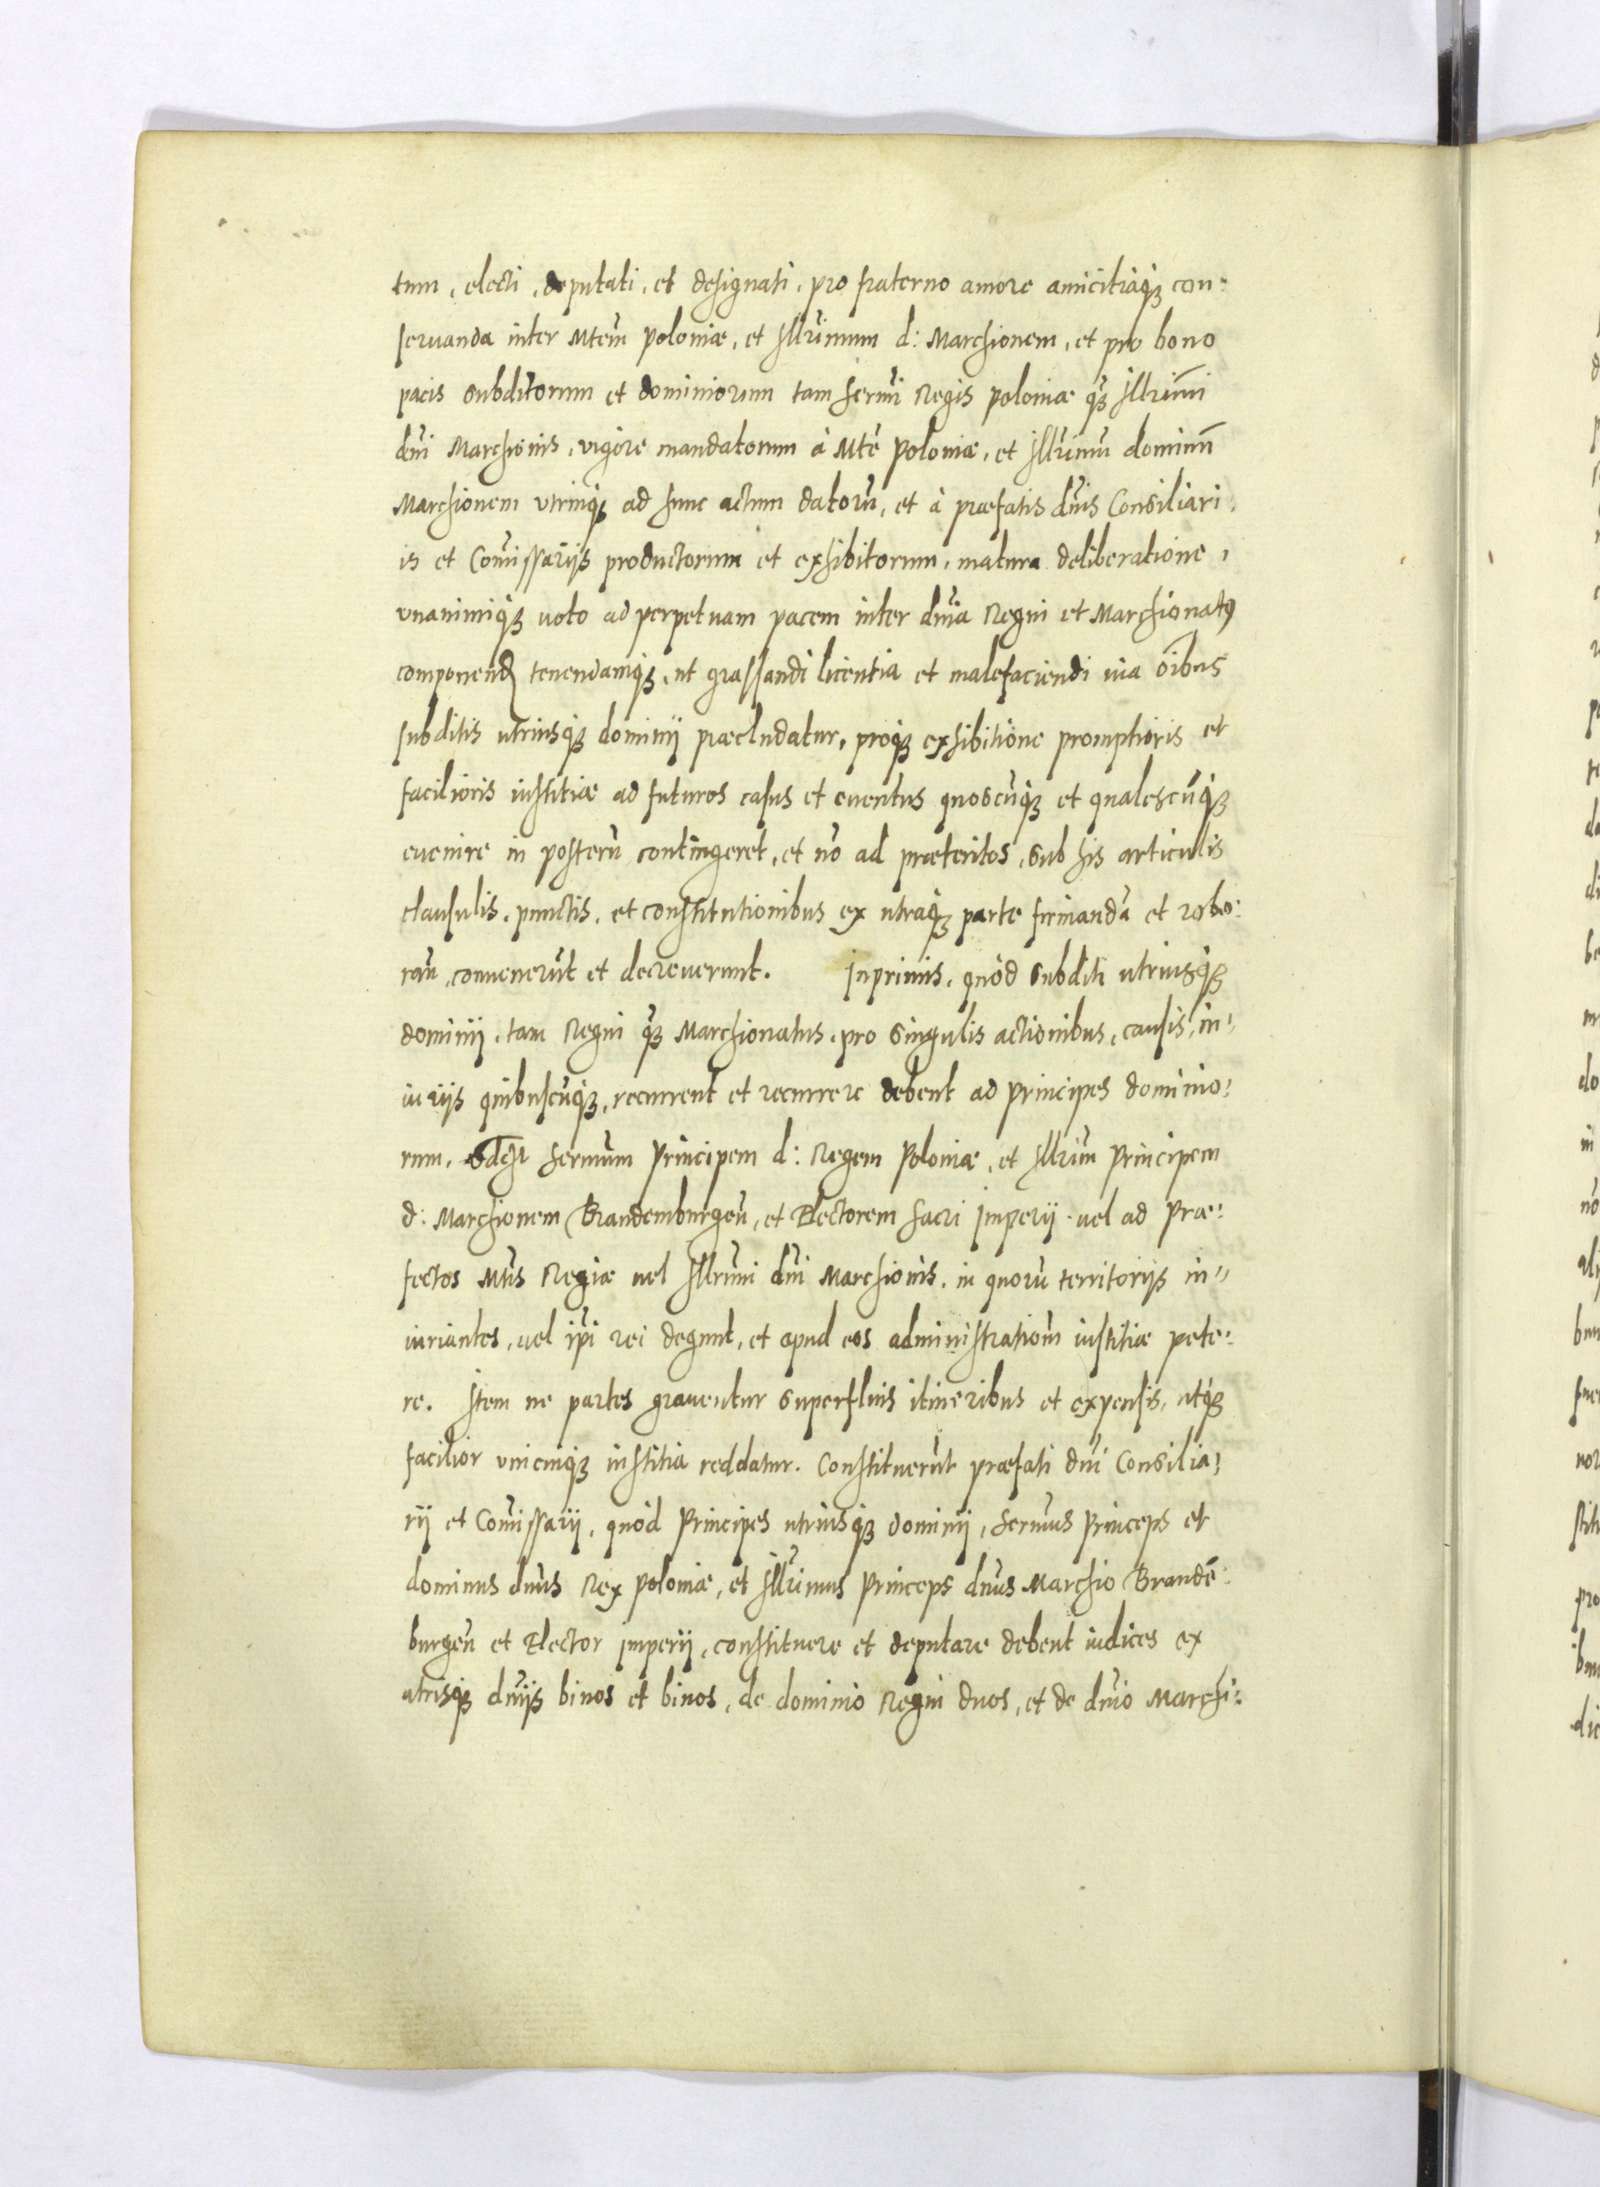 tum, electi, deputati, et designati, pro fraterno amore amicitiaq₃ con:
seruanda inter Mtem̃ Poloniæ, et Illrimum d: Marchionem, et pro bono
pacis Subditorum et dominiorum tam Sermi Regis Poloniæ q₃ Illrimi
dni Marchionis, vigore mandatorum à Mte Poloniæ, et Illrimu dominũ
Marchionem vtrinq₃ ad hunc actum datorũ, et à præfatis dnis Consiliari:
is et Com̃issarijs productorum et exhibitorum, matura deliberatione,
vnanimiq₃ uoto ad perpetuam pacem inter dnia Regni et Marchionatꝰ
componend tenendamq₃, ut grassandi licentia et malefaciendi uia oĩbus
subditis utriusq₃ dominij præcludatur, proq₃ exhibitione promptioris et
facilioris iustitiæ ad futuros casus et euentus quoscũq₃ et qualescũq₃
euenire in posterũ contingeret, et nõ ad præteritos, sub his articulis
clausulis, punctis, et constitutionibus ex utraq₃ parte firmanda et robo:
ran̄, conuenerũt et decreuerunt. Inprimis, quòd Subditi utriusq₃
dominij, tam Regni q₃ Marchionatus, pro Singulis actionibus, causis, in:
iurijs quibuscũq₃, recurrent et recurrere debent ad principes dominio:
rum, Sermum Principem d: Regem Poloniæ, et Illrim̃ Principem
d: Marchionem Brandemburgeñ, et Electorem Sacri Imperij uel ad Præ:
fectos Mtis Regiæ uel Illrimi dni Marchionis, in quorũ territorijs in:
iuriantes, uel ip̃i rei degunt, et apud eos administrationẽ iustitiæ pete:
re. Item ne partes grauentur Superfluis itineribus et expensis, utq₃
facilior vnicuiq₃ iustitia reddatur. Constituerũt præfati dni Consilia:
rij et Com̃issarij, quòd Principes utriusq₃ dominij, Sermus Princeps et
dominus dnus Rex Poloniæ, et Illrimus Princeps dnus Marchio Brandẽ:
burgeñ et Elector imperij, constituere et deputare debent iudices ex
utrisq₃ dnijs binos et binos, de dominio Regni duos, et de dnio Marchi: